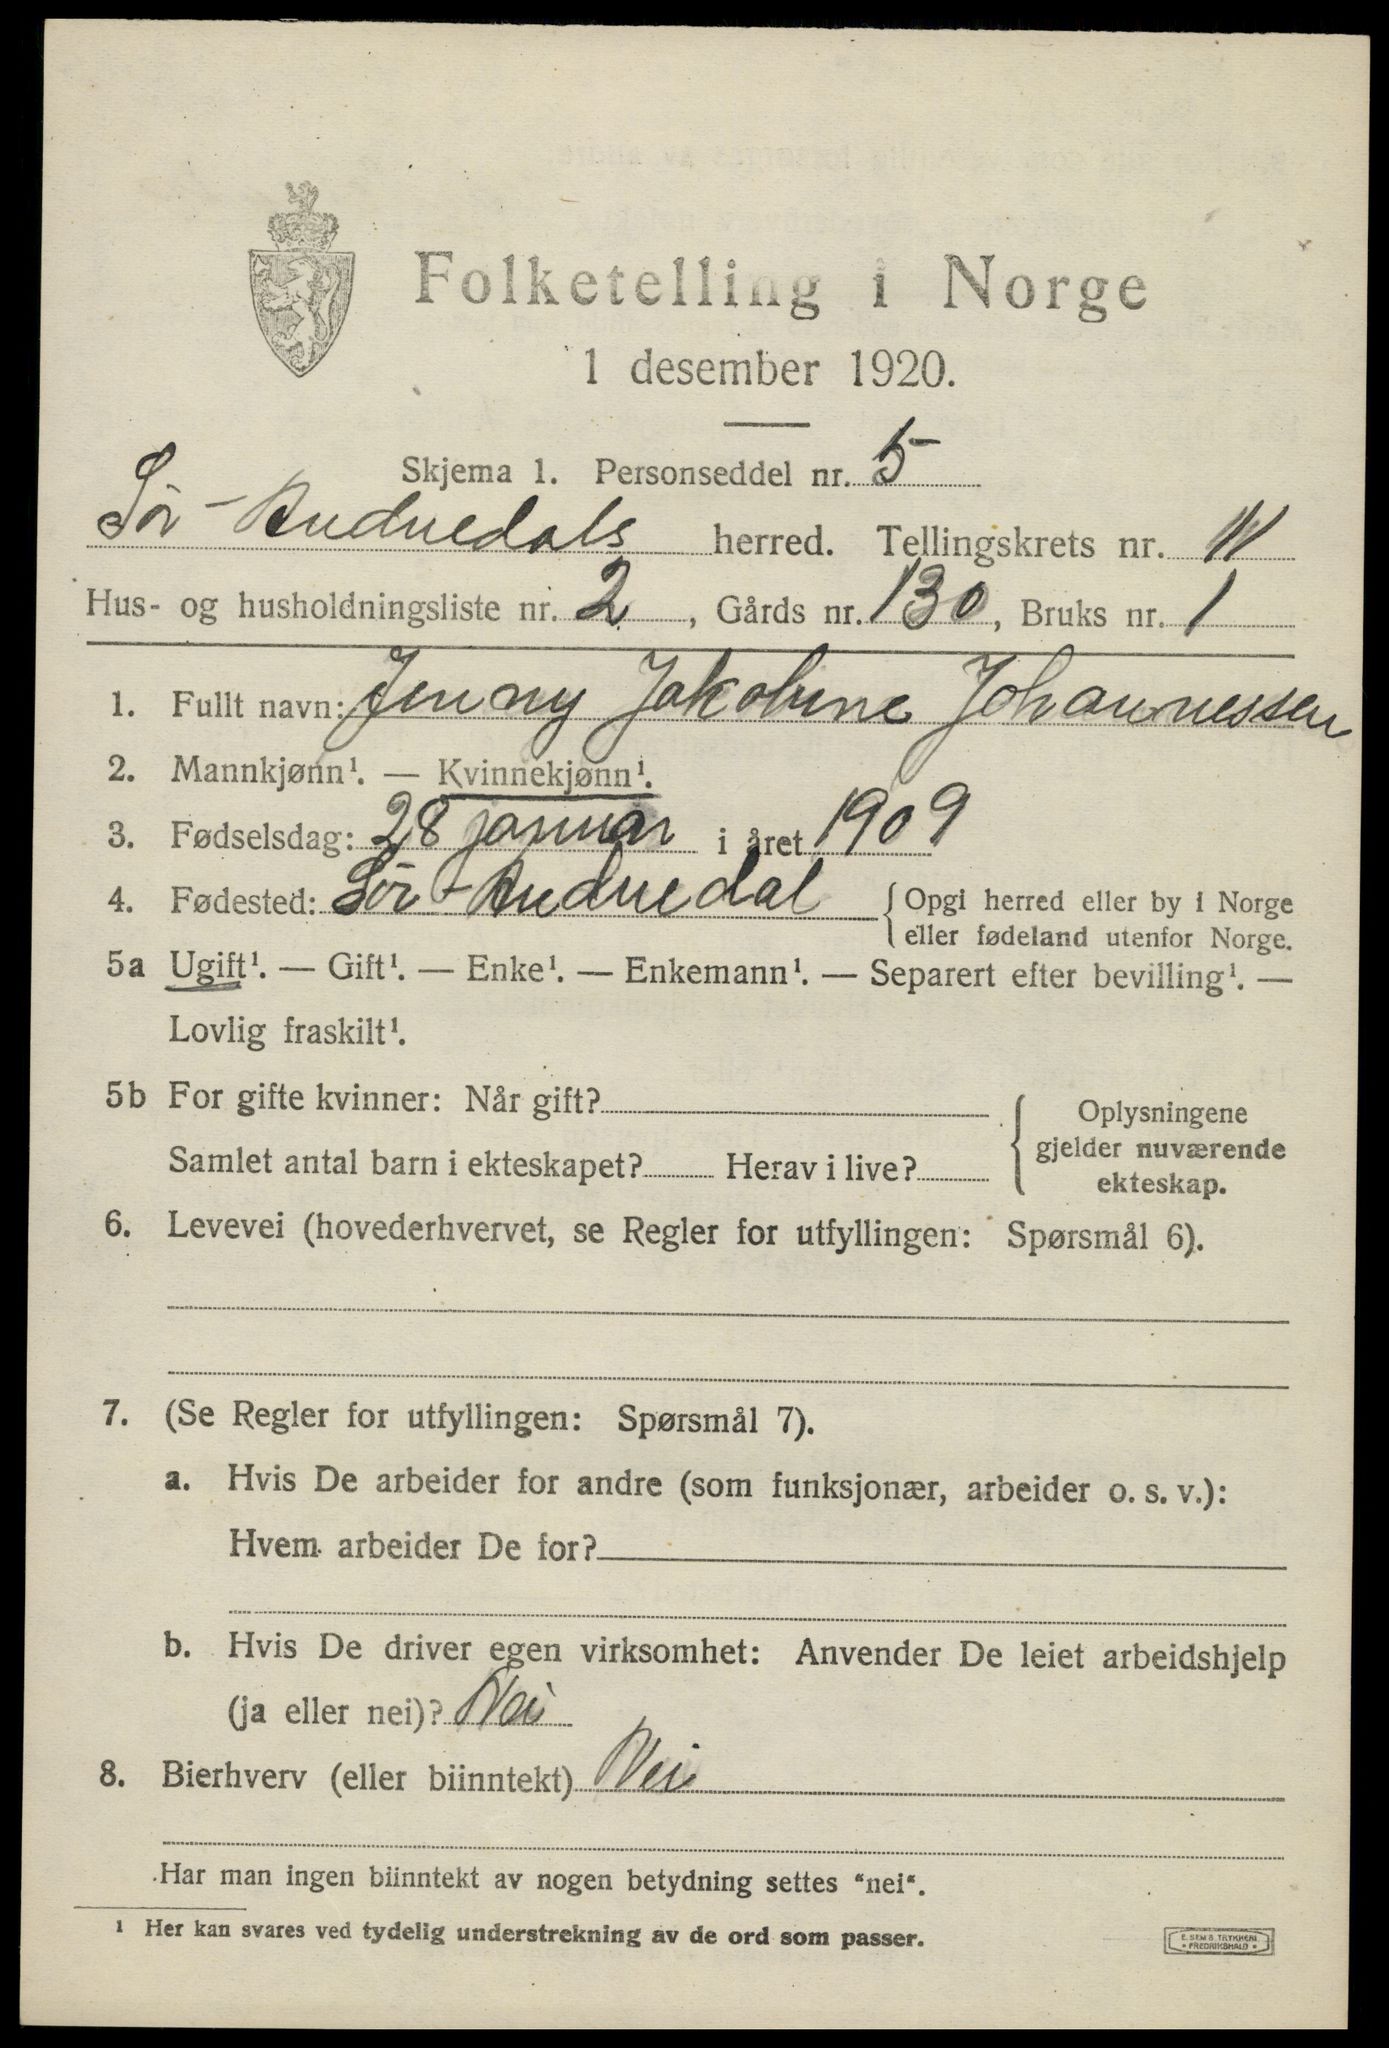 Folketelling i Norge
1 desember 1920.
Skjema 1. Personseddel nr. 5
Sør-Audnedals herred. Tellingskrets nr.
Hus- og husholdningsliste nr. 2, Gårds nr. 130, Bruks nr. 1
1. Fullt navn: Jenny Jakobine Johannessen
2. Mannkjønn¹. — Kvinnekjønn¹.
3. Fødselsdag: 28 januar i året 1909
4. Fødested: Sør-Audnedal { Opgi herred eller by i Norge
eller fødeland utenfor Norge.
5a Ugift¹. — Gift¹. — Enke¹. — Enkemann¹. — Separert efter bevilling¹. —
Lovlig fraskilt¹.
5b For gifte kvinner: Når gift?
Samlet antal barn i ekteskapet? Herav i live?
{ Oplysningene
gjelder nuværende
ekteskap.
6. Levevei (hovederhvervet, se Regler for utfyllingen: Spørsmål 6).
7. (Se Regler for utfyllingen: Spørsmål 7).
a. Hvis De arbeider for andre (som funksjonær, arbeider o. s. v.):
Hvem arbeider De for?
b. Hvis De driver egen virksomhet: Anvender De leiet arbeidshjelp
(ja eller nei)? Nei
8. Bierhverv (eller biinntekt) Nei
Har man ingen biinntekt av nogen betydning settes "nei".
¹ Her kan svares ved tydelig understrekning av de ord som passer.
E. SEM S TRYKKERI
• FREDRIKSHALD •